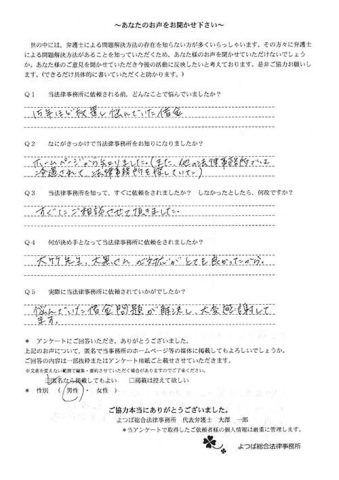 ～あなたのお声をお聞かせ下さい～
世の中には、弁護士による問題解決方法の存在を知らない方が多くいらっしゃいます。その方々に弁護士
による問題解決方法があることを知っていただくため、あなた様のお声を聞かせていただけないでしょう
か。あなた様のご意見を聞かせていただき今後の活動に反映したいと考えております。是非ご協力お願いし
ます。（できるだけ具体的に書いていただくと助かります。）
Q1 当法律事務所に依頼される前、どんなことで悩んでいましたか？
Q2 なにがきっかけで当法律事務所をお知りになりましたか？
ホームページで分かりました。（また、他の法律事務所では
Q3 当法律事務所を知って、すぐに依頼をされましたか？ しなかったとしたら、何故ですか？
すぐにご相談させて頂きました。
Q4 何が決め手となって当法律事務所に依頼をされましたか？
大竹先生、大黒さんの対応がとても良かったから。
Q5 実際に当法律事務所に依頼されていかがでしたか？
悩んでいた借金問題が解決し、大変感謝して
ます。
* アンケートにご回答いただき、ありがとうございます。
上記のお声について、匿名で当事務所のホームページ等の媒体に掲載してもよろしいでしょうか。
ご回答の内容は一部抜粋またはアンケート用紙ごと載せさせていただきます。
※文意を変えない範囲で編集・要約させていただく場合がありますのでご了承ください。
匿名なら掲載してもよい □掲載は控えて欲しい
* 性別 （ 男性 ・ 女性 ）
ご協力本当にありがとうございました。
よつば総合法律事務所 代表弁護士 大澤 一郎
*当アンケートで取得したご依頼者様の個人情報は厳重に管理します。
よつば総合法律事務所